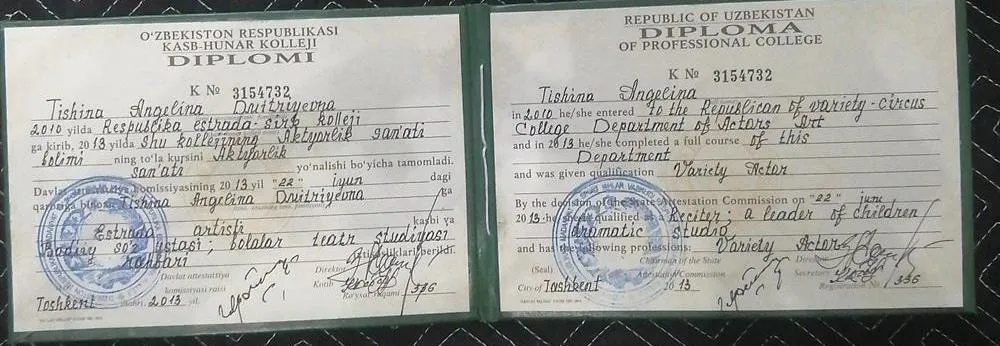 O'ZBEKISTON RESPUBLIKASI
KASB-HUNAR KOLLEJI
DIPLOMI
K № 3154732
Tishina Angelina Dmitriyevna
2010 yilda Respublika estrada-sirk kolleji
ga kirib, 2013 yilda Shu kollejining Aktyorlik san'ati
bolimi ning to'la kursini Aktyorlik
san'ati yo'nalishi bo'yicha tamomladi.
Davlat komissiyasining 2013 yil "22" iyun dagi
qaroriga binoan Tishina Angelina Dmitriyevna ga
Estrada artisti kasbi va
Badiiy so'z ustasi; bolalar teatr studiyasi
rahbari ixtisosliklari berildi.
Davlat attestattsiya
komissiyasi raisi
Direktor
Kotib
Toshkent shahri, 2013 yil.
Ro'yxat raqami 336
REPUBLIC OF UZBEKISTAN
DIPLOMA
OF PROFESSIONAL COLLEGE
K № 3154732
Tishina Angelina
in 2010 he/she entered to the Republican of variety-circus
College Department of Actors Art
and in 2013 he/she completed a full course of this
Department
and was given qualification Variety Actor
By the decision of the State Attestation Commission on "22" june
2013 he/she qualified as a Reciter; a leader of children
dramatic studio
and has the following professions: Variety Actor
(Seal)
Chairman of the State
Attestation Commission
Director
Secretary
City of Tashkent 2013
Registration No 336